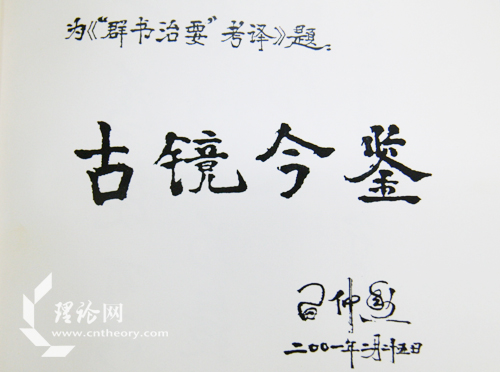 为《“群书治要”考译》题：
古镜今鉴
习仲勋
二〇〇一年二月二十五日
理论网
www.cntheory.com